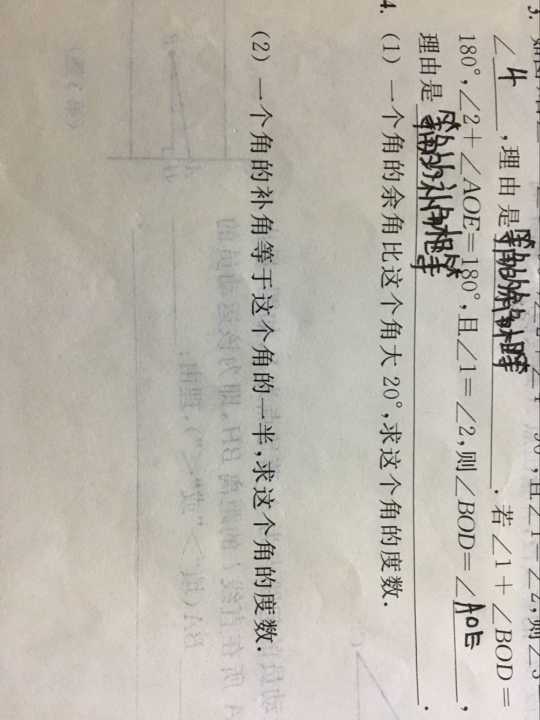 ∠4,理由是等角的余角相等.若∠1+∠BOD=
180°,∠2+∠AOE=180°,且∠1=∠2,则∠BOD=∠AOE,
理由是等角的补角相等.
4. (1) 一个角的余角比这个角大20°,求这个角的度数.
(2) 一个角的补角等于这个角的一半,求这个角的度数.